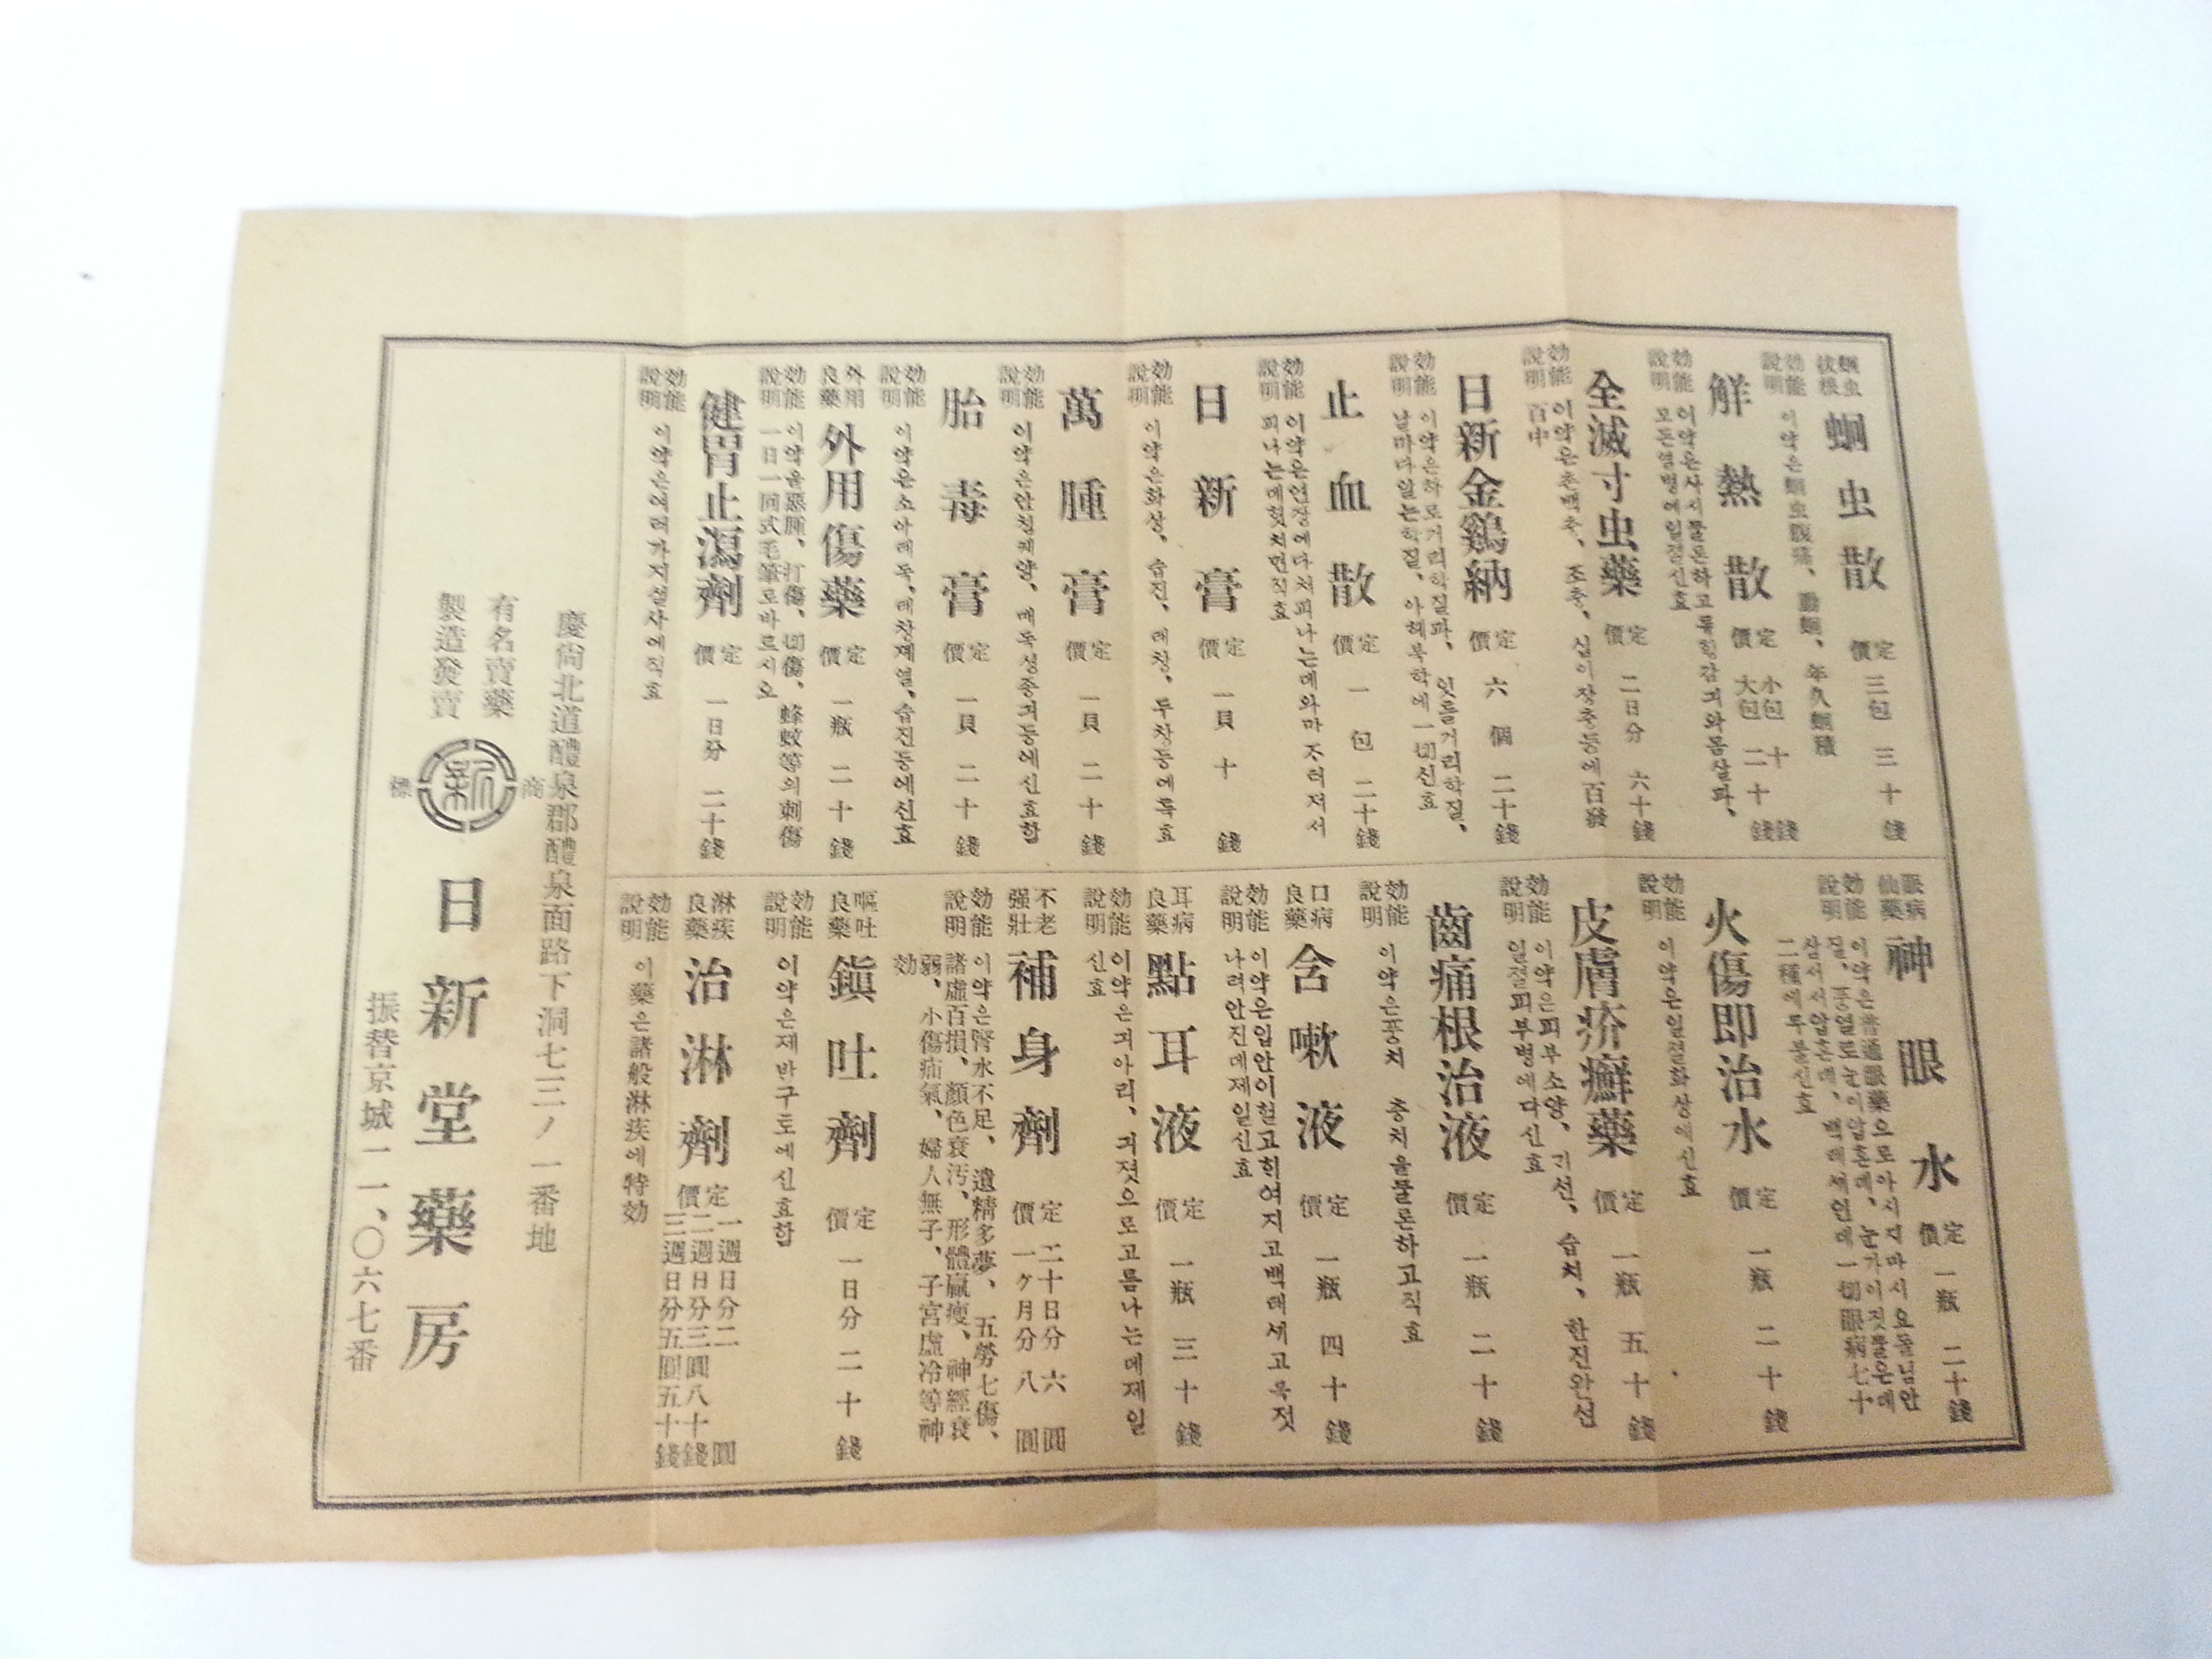 蛔虫
拔根
蛔虫散 定價 三包 三十錢
効能
說明
이약은蛔虫腹痛、
年久蛔積
解熱散 定價 小包 十錢
大包 二十錢
効能
說明
이약은사시물론하고류행감긔와몸살과、
모든열병에일절신효
全滅寸虫藥 定價 二日分 六十錢
効能
說明
이약은촌백충、조충、십이장충등에百發
百中
日新金鷄納 定價 六個 二十錢
効能
說明
이약은하로거리학질과、잇틀거리학질、
날마다알는학질、아해복학에一切신효
止血散 定價 一包 二十錢
効能
說明
이약은연장에다처피나는데와마 러저서
피나는데헛치면직효
日新膏 定價 一貝 十錢
効能
說明
이약은화상、습진、래창、두창등에특효
萬腫膏 定價 一貝 二十錢
効能
說明
이약은안칠궤양、매독성종긔등에신효함
胎毒膏 定價 一貝 二十錢
効能
說明
이약은소아태독、태창재열、습진등에신효
外用
良藥
外用傷藥 定價 一瓶 二十錢
効能
說明
이약을惡腫、打傷、切傷、蜂蚊等의刺傷
一日一回式毛筆로바르시오
健胃止瀉劑 定價 一日分 二十錢
効能
說明
이약은여러가지설사에직효
眼病
仙藥
神眼水 定價 一瓶 二十錢
効能
說明
이약은普通眼藥으로아시지마시요돌님안
질、풍열로눈이압흔데、눈가이짓물은데
삼서서압흔데、백태세인데一切眼病七十
二種에무불신효
火傷即治水 定價 一瓶 二十錢
効能
說明
이약은일절화상에신효
皮膚疥癬藥 定價 一瓶 五十錢
効能
說明
이약은피부소양、긔선、습치、한진완선
일절피부병에다신효
齒痛根治液 定價 一瓶 二十錢
効能
說明
이약은풍치 충치을물론하고직효
口病
良藥
含嗽液 定價 一瓶 四十錢
効能
說明
이약은입안이헐고희여지고백태세고목젓
나려안진데제일신효
耳病
良藥
點耳液 定價 一瓶 三十錢
効能
說明
이약은긔아리、긔젓으로고름나는데제일
신효
不老
强壯
補身劑 定價 二十日分 六圓
一ケ月分 八圓
効能
說明
이약은腎水不足、遺精多夢、五勞七傷、
諸虛百損、顏色衰汚、形體羸瘦、神經衰
弱、小傷疝氣、婦人無子、子宮虛冷等神
効
嘔吐
良藥
鎭吐劑 定價 一日分 二十錢
効能
說明
이약은제반구토에신효함
淋疾
良藥
治淋劑 定價 一週日分二圓
二週日分三圓八十錢
三週日分五圓五十錢
効能
說明
이藥은諸般淋疾에特効
慶尙北道醴泉郡醴泉面路下洞七三ノ一番地
有名賣藥
製造發賣
商標
新
日新堂藥房
振替京城一一、〇六七番